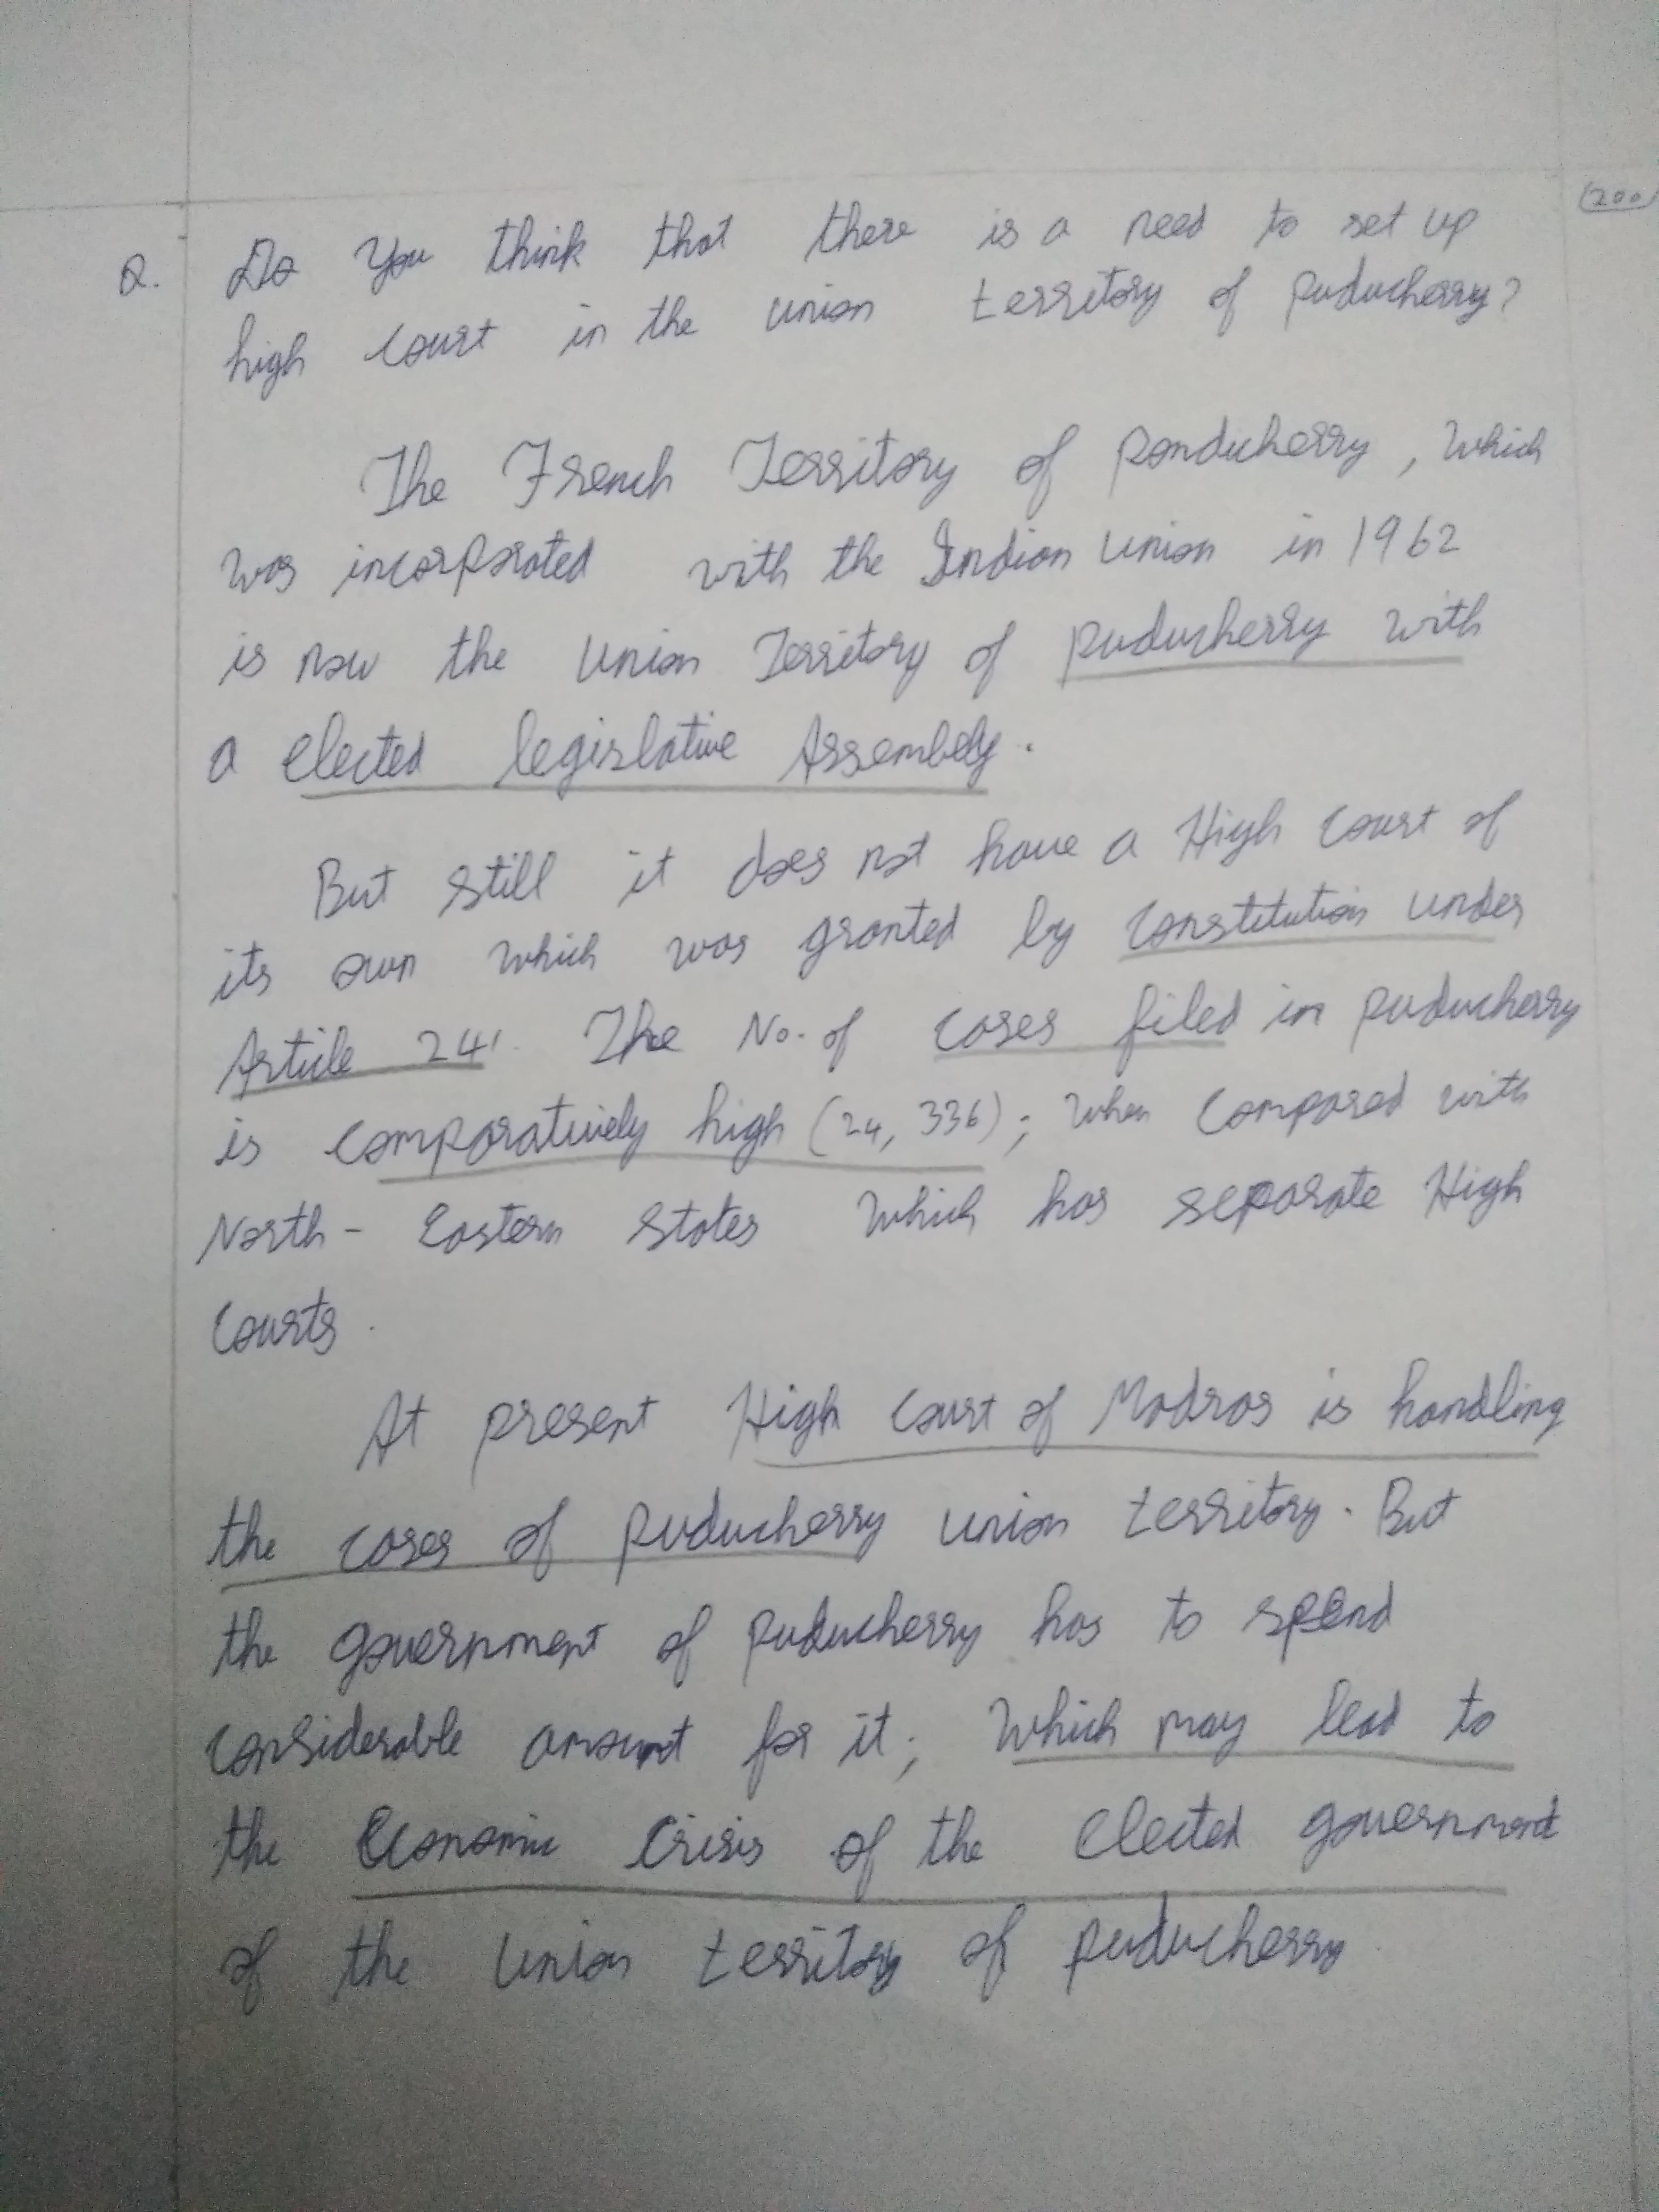 (200)
Q. Do You think that there is a need to set up
high court in the union territory of puducherry?
The French Territory of Pondicherry, which
was incorporated with the Indian Union in 1962
is now the Union Territory of puducherry with
a elected legislative Assembely.
But still it does not have a High Court of
its own which was granted by constitution under
Article 241. The No. of cases filed in puducherry
is comparatively high (24,336); when compared with
North-Eastern States which has separate High
Courts.
At present High Court of Madras is handling
the cases of puducherry union territory. But
the government of puducherry has to spend
considerable amount for it; which may lead to
the Economic Crisis of the elected government
of the Union territory of puducherry